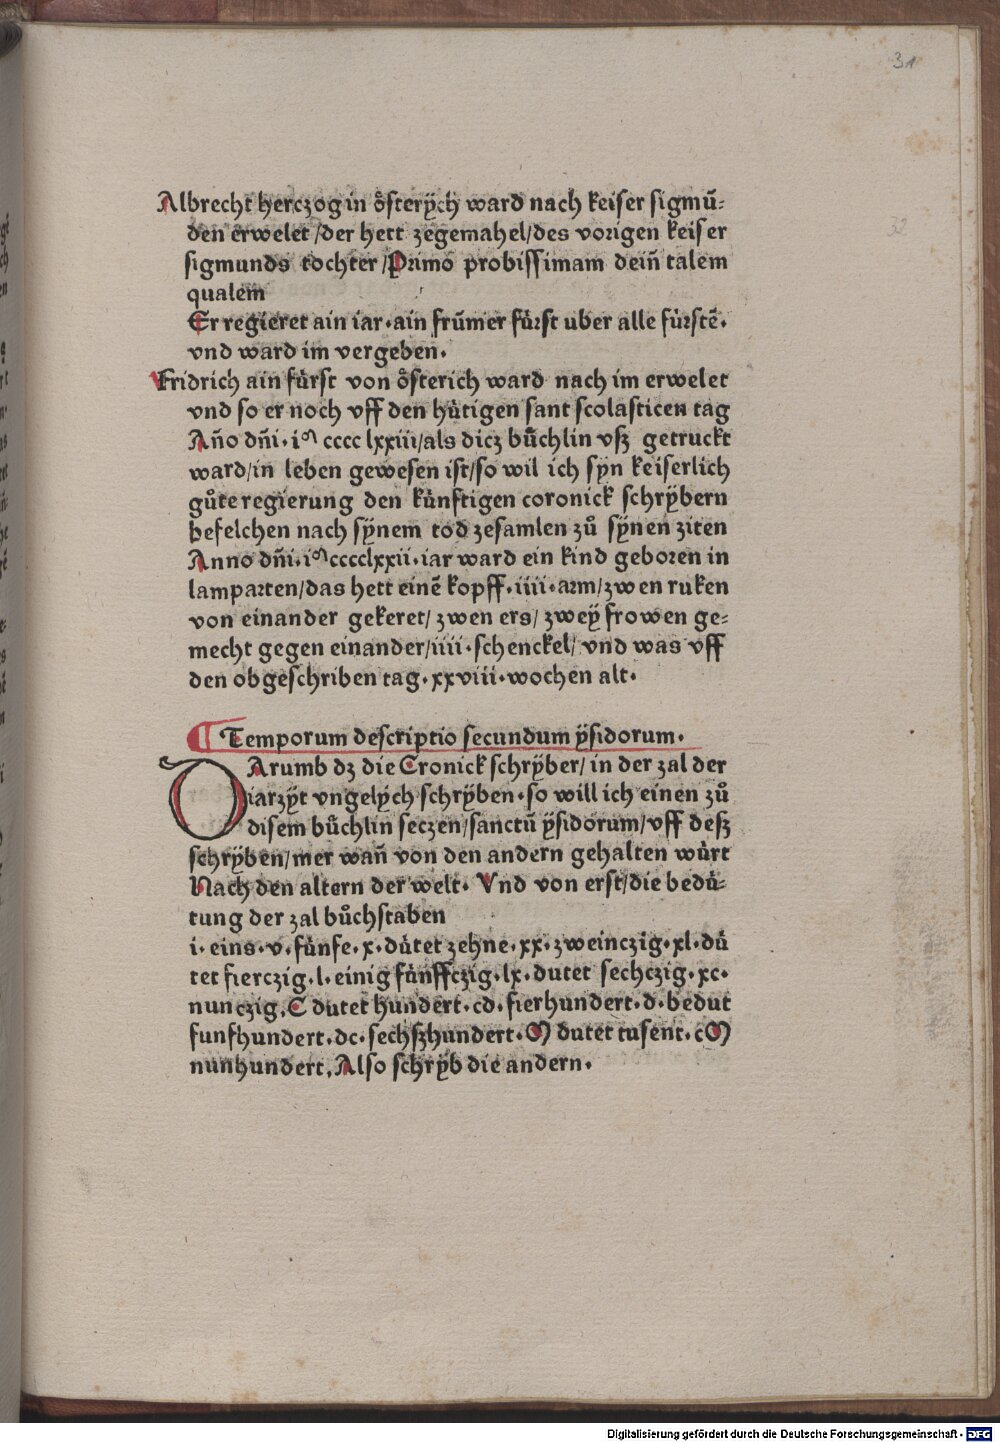 31
32
Albrecht herczog in oͤsterÿch ward nach keiser sigmū⸗
den erwelet /der hett zegemahel/des vorigen keiser
sigmunds tochter /Primo probissimam dein̄ talem
qualem
Er regieret ain iar·ain frūmer fúrst uber alle fúrstē·
vnd ward im vergeben·
Fridrich ain fúrst von oͤsterich ward nach im erwelet
vnd so er noch vff den hútigen sant scolasticen tag
An̄o dn̄i·iᵐ cccc lxxiii/als dicz buͤchlin vsz getruckt
ward/in leben gewesen ist/so wil ich syn keiserlich
guͦte regierung den kúnftigen coronick schrÿbern
befelchen nach sÿnem tod zesamlen zuͦ sÿnen ziten
Anno dn̄i·iᵐcccclxxii·iar ward ein kind geboren in
lamparten/das hett einē kopff·iiii·arm/zwen ruken
von einander gekeret/ zwen ers/ zweÿ frowen ge⸗
mecht gegen einander/iiii·schenckel/ vnd was vff
den obgeschriben tag·xxviii·wochen alt·
¶ Temporum descriptio secundum ÿsidorum·
DArumb dz die Cronick schrÿber/ in der zal der
iarzÿt vngelÿch schrÿben·so will ich einen zuͦ
disem buͤchlin seczen/sanctū ÿsidorum/vff desz
schrÿben/mer wan̄ von den andern gehalten wúrt
Nach den altern der welt· Vnd von erst/die bedú⸗
tung der zal buͦchstaben
i· eins·v·fúnfe·x·dútet zehne·xx·zweinczig·xl·dú
tet fierczig·l·einig fúnffczig·lx·dutet sechczig·xc·
nunczig·C dutet hundert·cd·fierhundert·d·bedut
funfhundert·dc·sechszhundert·M dutet tusent·cM
nunhundert·Also schrÿb die andern·
Digitalisierung gefördert durch die Deutsche Forschungsgemeinschaft - DFG